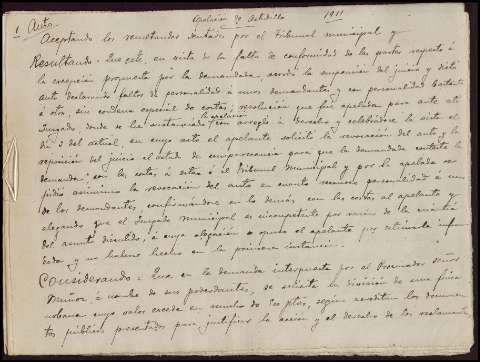 Apelación de Astudillo 1911
1 Auto
Aceptando los resultandos sentados por el Tribunal municipal y
Resultando: Que este, en vista de la falta de conformidad de las partes respecto á
la excepción propuesta por la demandada, acordó la suspensión del juicio y dictó
auto declarando faltos de personalidad á unos demandantes y con personalidad bastante
á otro, sin condena especial de costas; resolución que fué apelada para ante este
Juzgado, donde se ha sustanciado la apelación con arreglo á derecho y celebrádose la vista el
día 3 del actual, en cuyo acto el apelante solicitó la revocación del auto y la
reposición del juicio al estado de comparecencia para que la demandada conteste la
demanda con las costas á esta ó al Tribunal municipal y por la apelada se
pidió asimismo la revocación del auto en cuanto reconoce personalidad á uno
de los demandantes, confirmándose en lo demás, con las costas al apelante y
alegando que el Juzgado municipal es incompetente por razón de la cuantía
del asunto discutido, á cuya alegación se opuso el apelante por estimarla infun
dada y no haberse hecho en la primera instancia.
Considerando: Que en la demanda interpuesta por el Procurador señor
Muñoz á nombre de sus poderdantes, se solicita la división de una finca
urbana cuyo valor excede en mucho de 500 ptas, según acreditan los documen
tos públicos presentados para justificar la acción y el derecho de los reclamantes